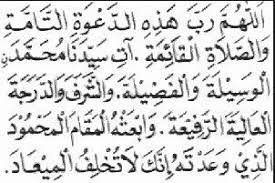 اَللّٰهُمَّ رَبَّ هٰذِهِ الدَّعْوَةِ التَّامَّةِ
وَالصَّلَاةِ الْقَائِمَةِ. آتِ سَيِّدَنَا مُحَمَّدَنِ
الْوَسِيلَةَ وَالْفَضِيلَةَ. وَالشَّرَفَ وَالدَّرَجَةَ
الْعَالِيَةَ الرَّفِيعَةَ. وَابْعَثْهُ الْمَقَامَ الْمَحْمُودَ
الَّذِي وَعَدْتَهُ إِنَّكَ لَا تُخْلِفُ الْمِيعَادَ.